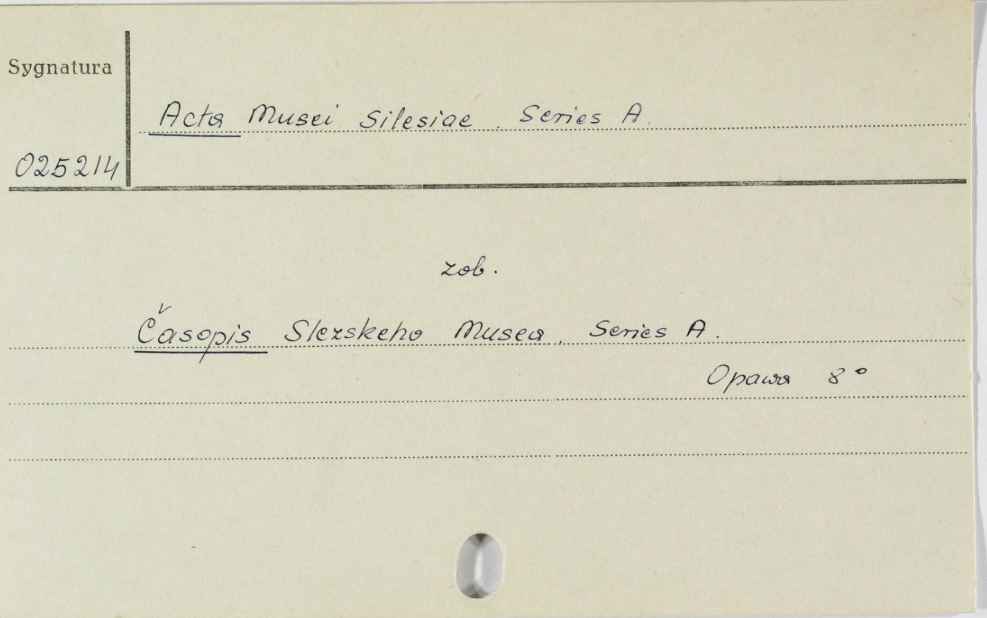 Sygnatura
Acta Musei Silesiae. Series A.
025214
zob.
Časopis Slezskeho Musea, Series A.
Opawa 8°